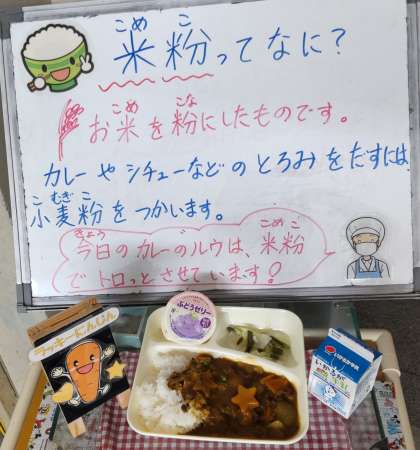 こめ こ
米粉ってなに?
こめ こな
お米を粉にしたものです。
カレーやシチューなどのとろみをだすには、
こ むぎ こ
小麦粉をつかいます。
きょう こめ こ
今日のカレーのルウは、米粉
でトロッとさせています!
ぶどうゼリー
ラッキーにんじん